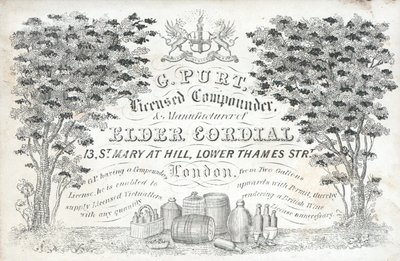 G. PURT,
Licensed Compounder,
& Manufacturer of
ELDER CORDIAL
13, ST. MARY AT HILL, LOWER THAMES STR.
London.
G.P. having a Compounders
License, he is enabled to
supply Licensed Victuallers
with any quantity
from Two Gallons
upwards with Permit, thereby
rendering a British Wine
License unnecessary.